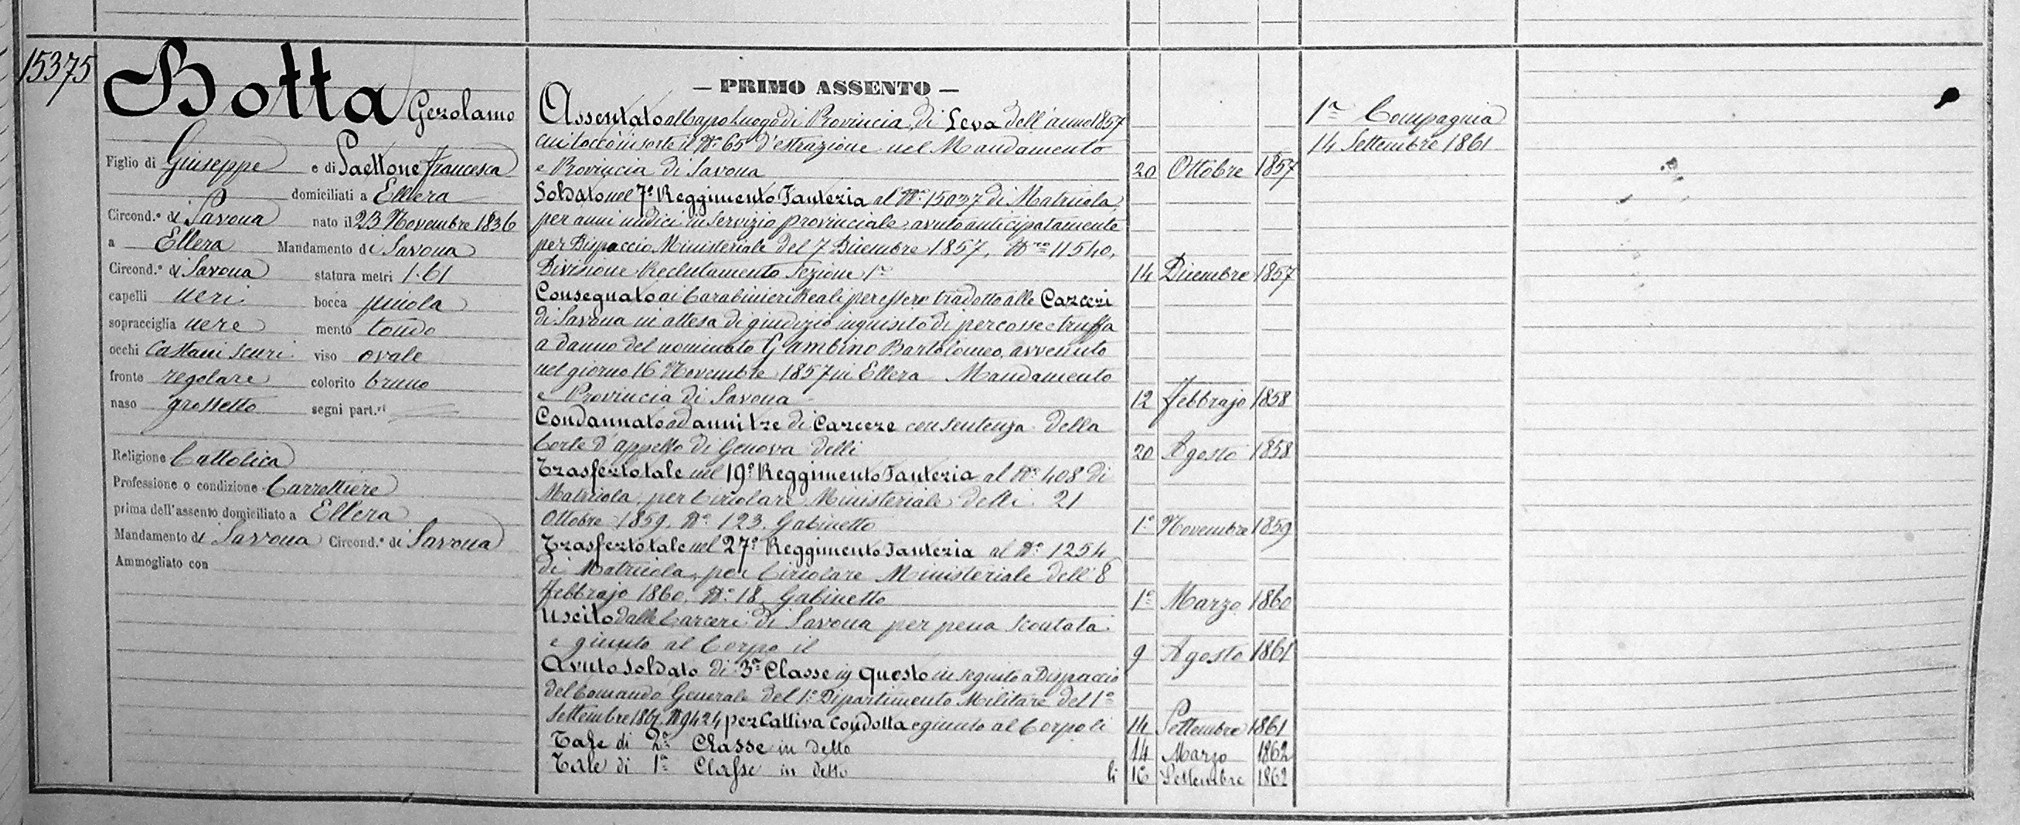 15375
Botta Gerolamo
Figlio di Giuseppe e di Saettone Francesca
domiciliati a Ellera
Circond.º di Savona nato il 23 Novembre 1836
a Ellera Mandamento di Savona
Circond.º di Savona statura metri 1.61
capelli neri bocca piccola
sopracciglia nere mento tondo
occhi castani scuri viso ovale
fronte regolare colorito bruno
naso grossetto segni part.ri
Religione Cattolica
Professione o condizione Carrettiere
prima dell'assento domiciliato a Ellera
Mandamento di Savona Circond.º di Savona
Ammogliato con
— PRIMO ASSENTO —
Assentato al Capo Luogo di Provincia, di Leva dell'anno 1857
cui toccò in sorte il Nº 65 d'estrazione nel Mandamento
e Provincia di Savona 20 Ottobre 1857
Soldato nel 7º Reggimento Fanteria al Nº 15037 di Matricola
per anni undici in servizio provinciale, avuto anticipatamente
per Dispaccio Ministeriale del 7 Dicembre 1857, Nro 11540,
Divisione Reclutamento Sezione 1ª 14 Dicembre 1857
Consegnato ai Carabinieri Reali per essere tradotto alle Carceri
di Savona in attesa di giudizio inquisito di percosse e truffa
a danno del nominato Gambino Bartolomeo, avvenuto
nel giorno 16 Novembre 1857 in Ellera Mandamento
e Provincia di Savona 12 Febbrajo 1858
Condannato ad anni tre di Carcere con sentenza della
Corte d'appello di Genova delli 20 Agosto 1858
Trasferto tale nel 19º Reggimento Fanteria al Nº 408 di
Matricola, per Circolare Ministeriale delli 21
Ottobre 1859, Nº 123. Gabinetto 1º Novembre 1859
Trasferto tale nel 27º Reggimento Fanteria al Nº 1254
di Matricola, per Circolare Ministeriale dell'8
Febbrajo 1860, Nº 18, Gabinetto 1º Marzo 1860
Uscito dalle Carceri di Savona per pena scontata
e giunto al Corpo il 9 Agosto 1861
Avuto soldato di 3ª Classe in questo in seguito a Dispaccio
del Comando Generale del 1º Dipartimento Militare del 1º
Settembre 1861, Nº 9424 per Cattiva Condotta e giunto al Corpo li 14 Settembre 1861
Tale di 2ª Classe in detto 14 Marzo 1862
Tale di 1ª Classe in detto li 16 Settembre 1862
1ª Compagnia
14 Settembre 1861